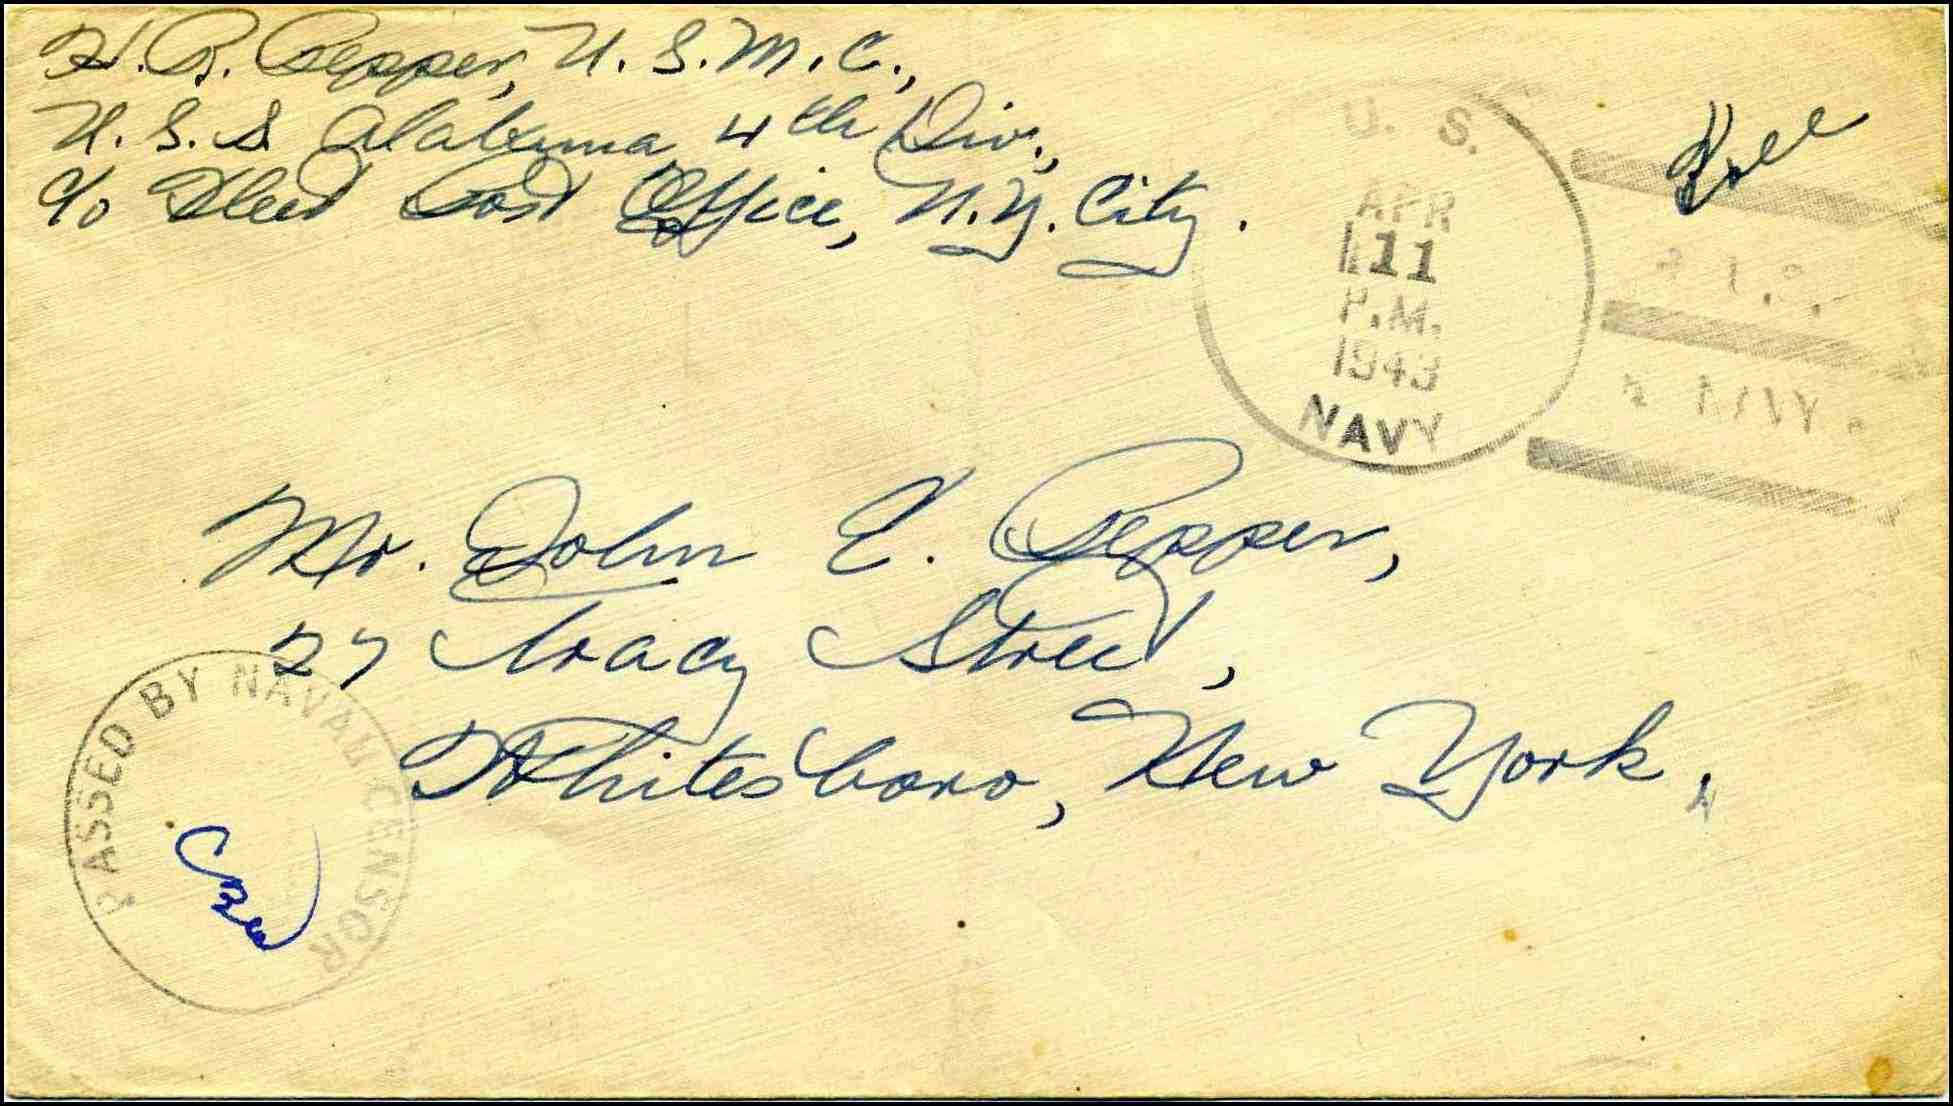 H. R. Pepper, U. S. M. C.,
U. S. S Alabama 4th Div.,
c/o Fleet Post Office, N. Y. City.
Free
U. S.
APR
11
P.M.
1943
NAVY
NAVY
Mr. John E. Pepper,
27 Tracy Street,
Whitesboro, New York.
PASSED BY NAVAL CENSOR